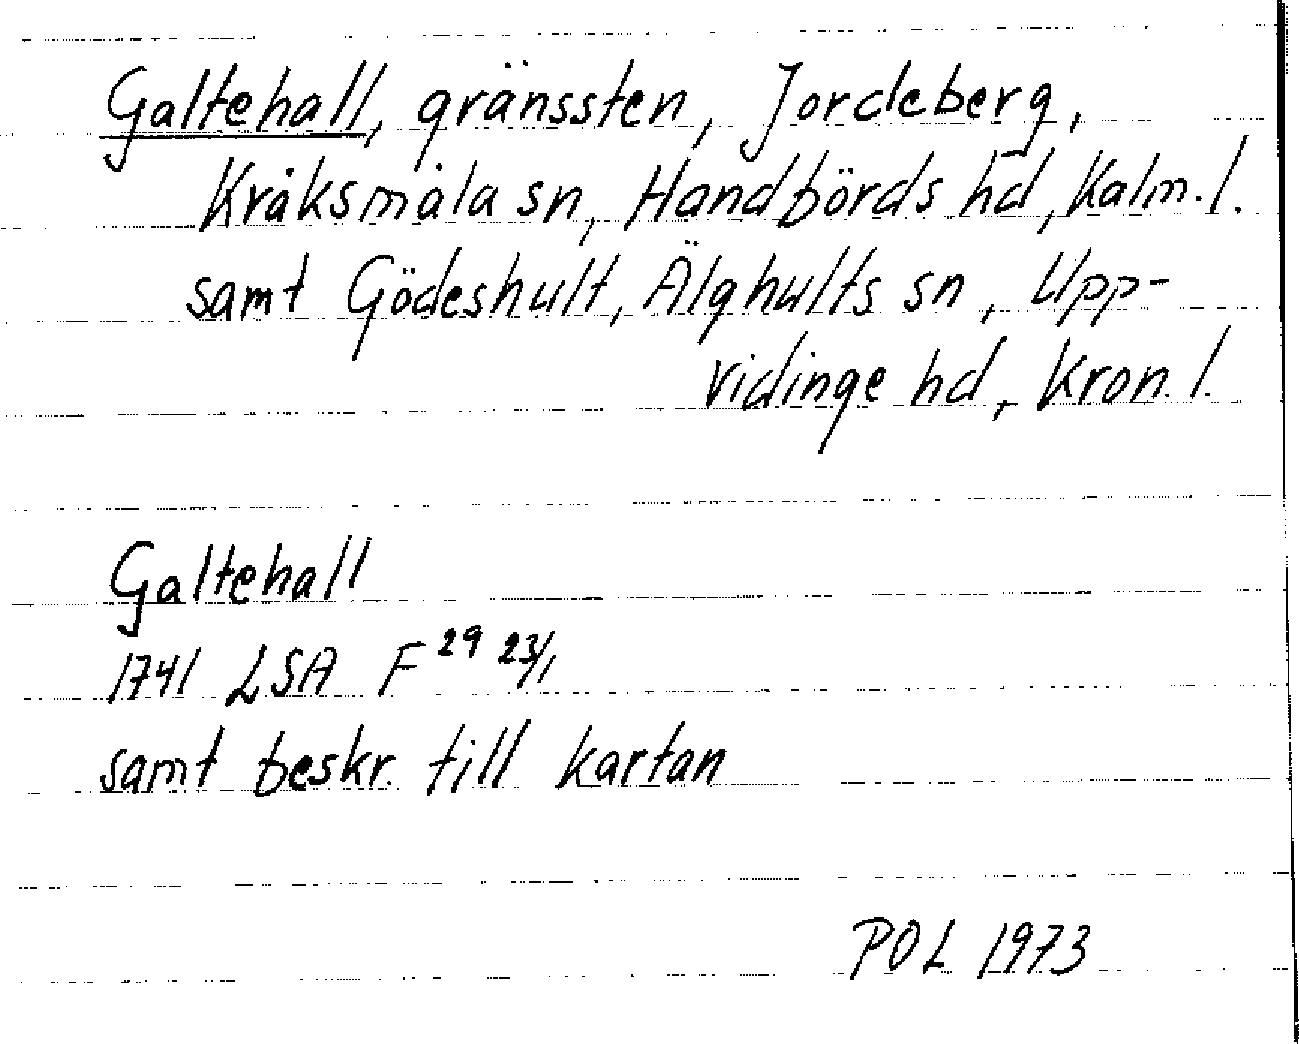 Galtehall, gränssten, Jordeberg,
Kråksmåla sn, Handbörds hd, Kalm. l.
samt Gödeshult, Älghults sn, Upp-
vidinge hd, Kron. l.
Galtehall
1741 LSA F 29 23/1
samt beskr. till kartan
POL 1973